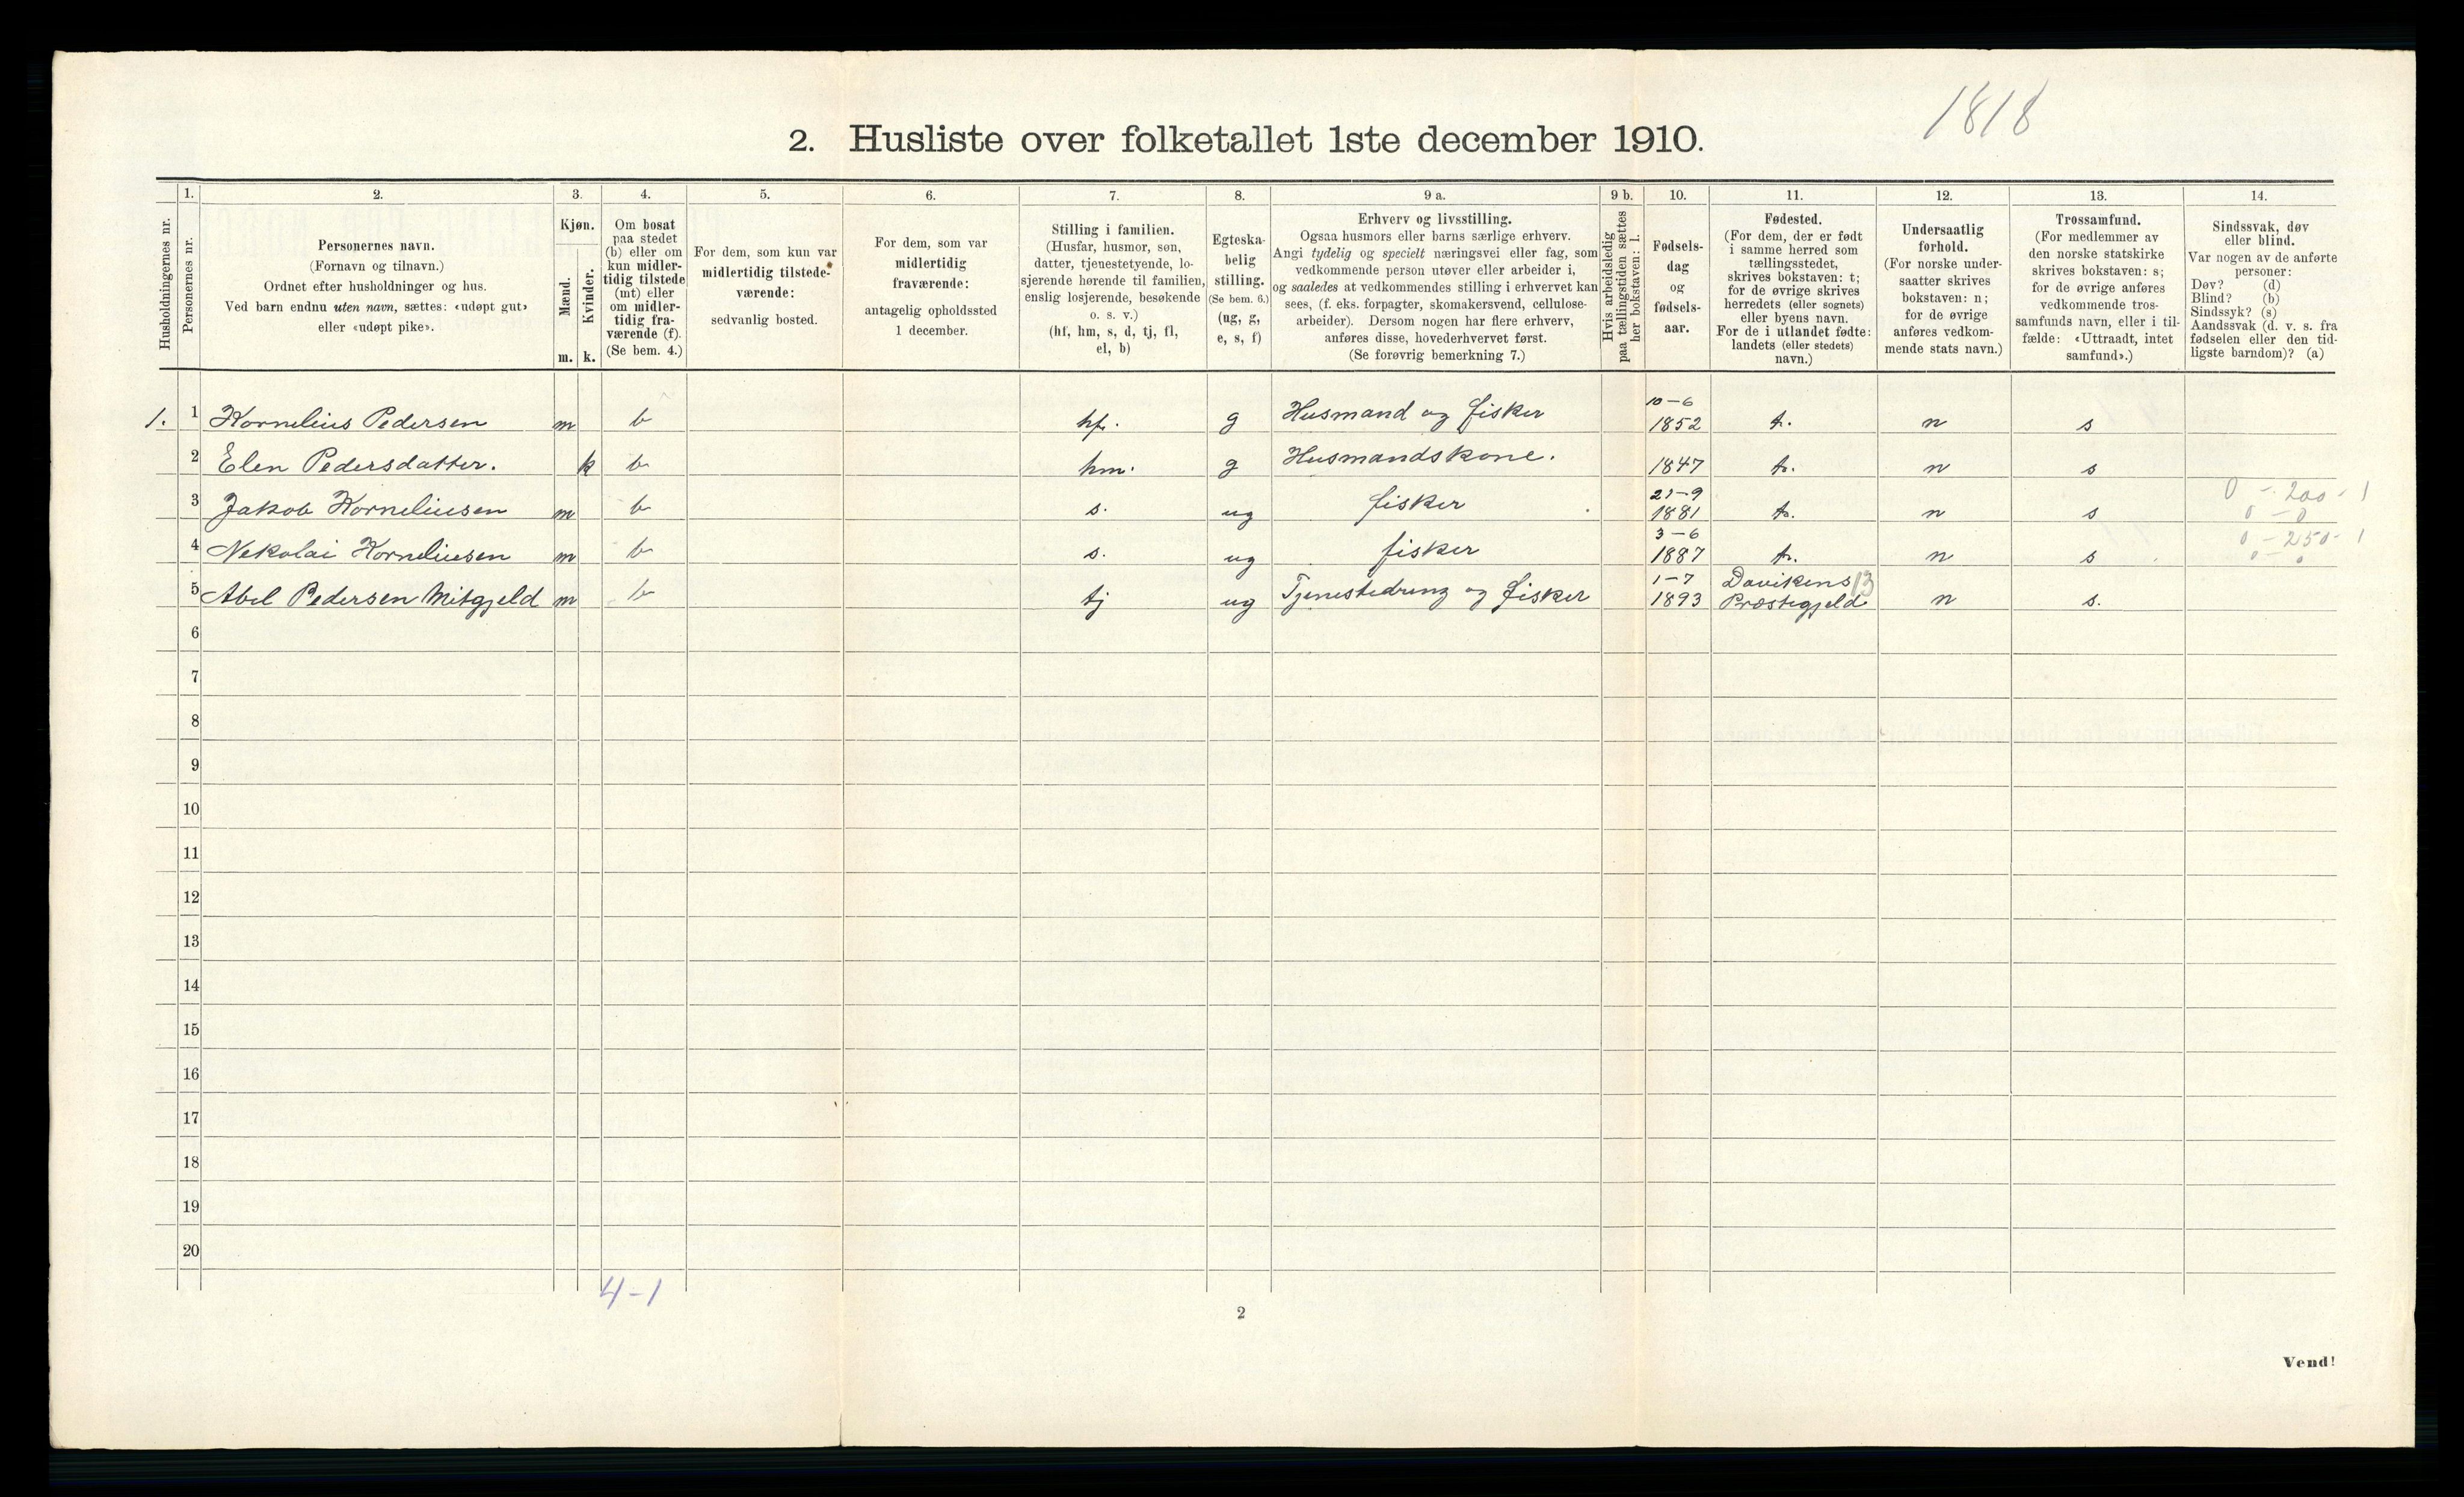 1818
2. Husliste over folketallet 1ste december 1910.
1. 2. 3. 4. 5. 6. 7. 8. 9 a. 9 b. 10. 11. 12. 13. 14.
Husholdningernes nr.
Personernes nr.
Personernes navn.
(Fornavn og tilnavn.)
Ordnet efter husholdninger og hus.
Ved barn endnu uten navn, sættes: «udøpt gut»
eller «udøpt pike».
Kjøn.
Mænd.
Kvinder.
m. k.
Om bosat
paa stedet
(b) eller om
kun midler-
tidig tilstede
(mt) eller
om midler-
tidig fra-
værende (f).
(Se bem. 4.)
For dem, som kun var
midlertidig tilstede-
værende:
sedvanlig bosted.
For dem, som var
midlertidig
fraværende:
antagelig opholdssted
1 december.
Stilling i familien.
(Husfar, husmor, søn,
datter, tjenestetyende, lo-
sjerende hørende til familien,
enslig losjerende, besøkende
o. s. v.)
(hf, hm, s, d, tj, fl,
el, b)
Egteska-
belig
stilling.
(Se bem. 6.)
(ug, g,
e, s, f)
Erhverv og livsstilling.
Ogsaa husmors eller barns særlige erhverv.
Angi tydelig og specielt næringsvei eller fag, som
vedkommende person utøver eller arbeider i,
og saaledes at vedkommendes stilling i erhvervet kan
sees, (f. eks. forpagter, skomakersvend, cellulose-
arbeider). Dersom nogen har flere erhverv,
anføres disse, hovederhvervet først.
(Se forøvrig bemerkning 7.)
Hvis arbeidsledig
paa tællingstiden sættes
her bokstaven: l.
Fødsels-
dag
og
fødsels-
aar.
Fødested.
(For dem, der er født
i samme herred som
tællingsstedet,
skrives bokstaven: t;
for de øvrige skrives
herredets (eller sognets)
eller byens navn.
For de i utlandet fødte:
landets (eller stedets)
navn.)
Undersaatlig
forhold.
(For norske under-
saatter skrives
bokstaven: n;
for de øvrige
anføres vedkom-
mende stats navn.)
Trossamfund.
(For medlemmer av
den norske statskirke
skrives bokstaven: s;
for de øvrige anføres
vedkommende tros-
samfunds navn, eller i til-
fælde: «Uttraadt, intet
samfund».)
Sindssvak, døv
eller blind.
Var nogen av de anførte
personer:
Døv? (d)
Blind? (b)
Sindssyk? (s)
Aandssvak (d. v. s. fra
fødselen eller den tid-
ligste barndom)? (a)
1. 1 Kornelius Pedersen m b hf. g Husmand og fisker 10-6 1852 t. n s
2 Elen Pedersdatter. k b hm. g Husmandskone. 1847 t. n s
3 Jakob Korneliusen m b s. ug fisker 21-9 1881 t. n s 0 - 200 - 1 0 - 0
4 Nekolai Korneliusen m b s. ug fisker 3-6 1887 t. n s 0 - 250 - 1 0 - 0
5 Abel Pedersen Mitgjeld m b tj ug Tjenestedreng og fisker 1-7 1893 Davikens Præstegjeld 13 n s.
6
7
8
9
10
11
12
13
14
15
16
17
18
19
20
4-1
2
Vend!